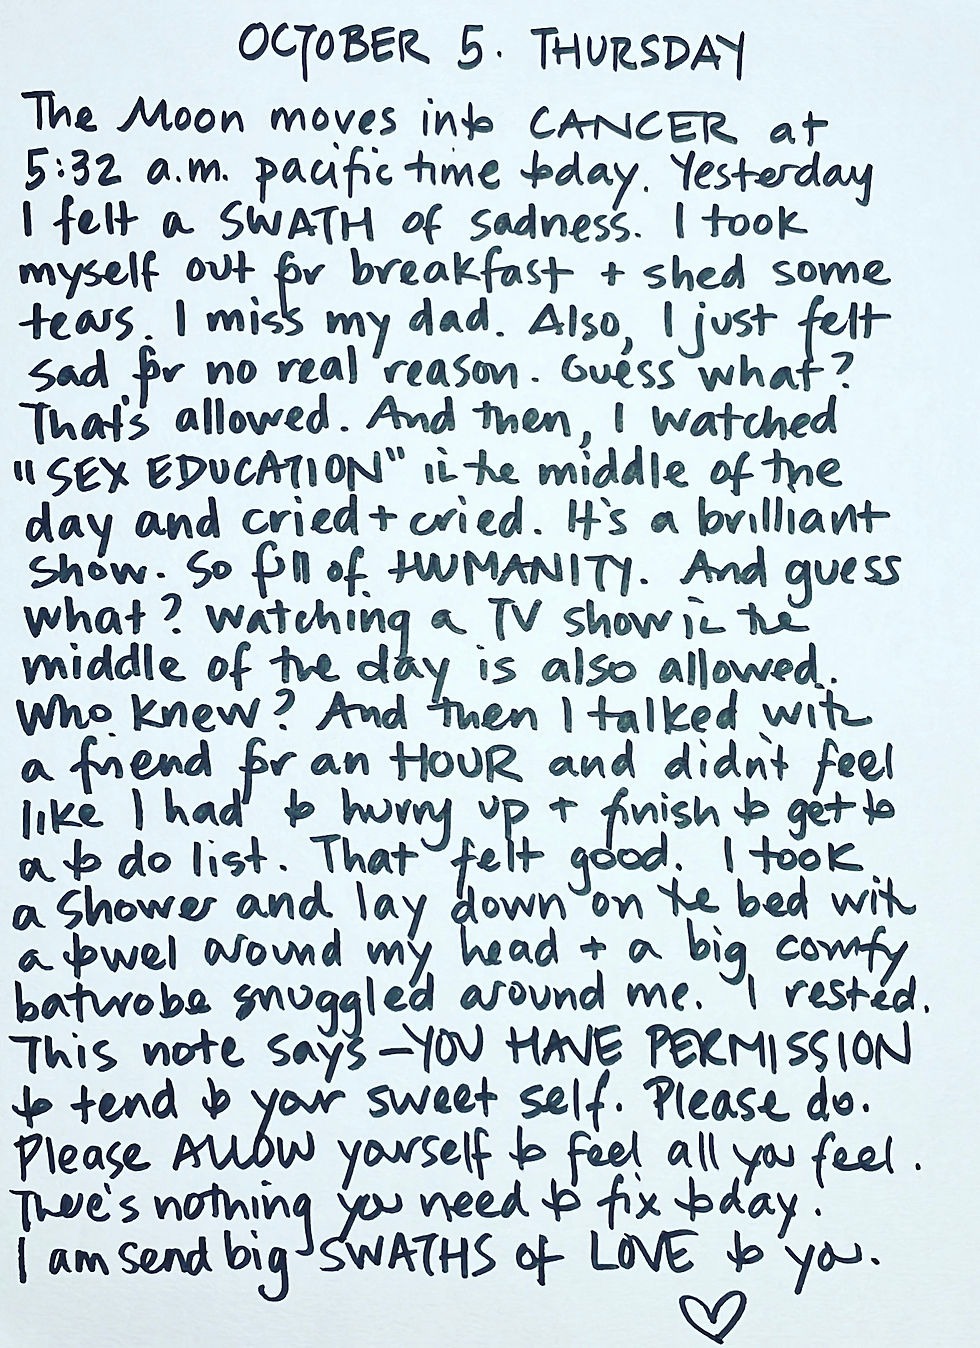 OCTOBER 5. THURSDAY
The Moon moves into CANCER at
5:32 a.m. pacific time today. Yesterday
I felt a SWATH of sadness. I took
myself out for breakfast + shed some
tears. I miss my dad. Also, I just felt
sad for no real reason. Guess what?
That's allowed. And then, I watched
"SEX EDUCATION" in the middle of the
day and cried + cried. It's a brilliant
show. So full of HUMANITY. And guess
what? Watching a TV show in the
middle of the day is also allowed.
Who knew? And then I talked with
a friend for an HOUR and didn't feel
like I had to hurry up + finish to get to
a to do list. That felt good. I took
a shower and lay down on the bed with
a towel around my head + a big comfy
bathrobe snuggled around me. I rested.
This note says - YOU HAVE PERMISSION
to tend to your sweet self. Please do.
Please ALLOW yourself to feel all you feel.
There's nothing you need to fix today.
I am send big SWATHS of LOVE to you.
♡